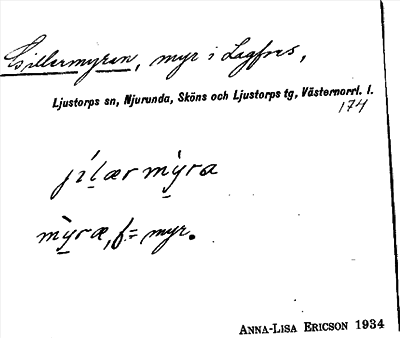 Gillermyran, myr i Lagfors,
Ljustorps sn, Njurunda, Sköns och Ljustorps tg, Västernorrl. l.
174
jílær mỳra
mỳræ, f = myr.
ANNA-LISA ERICSON 1934